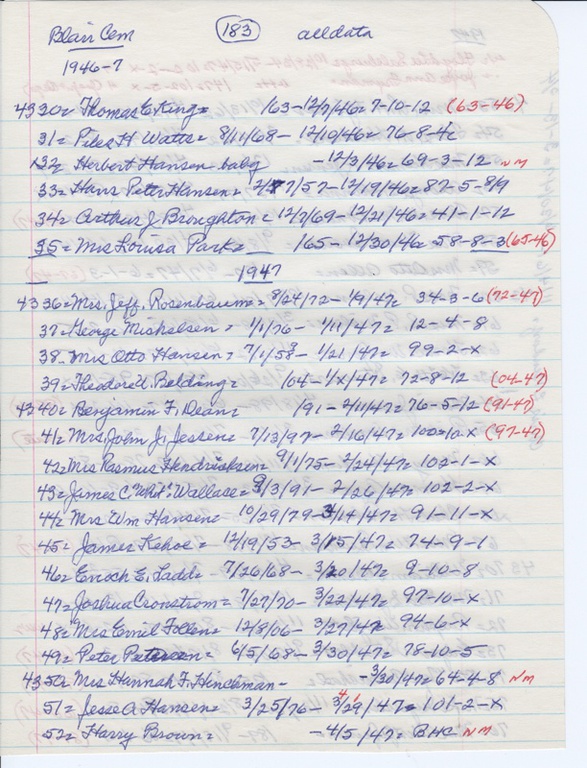 Blair Cem 183 alldata
1946-7
4330= Thomas E. King= /63-12/7/46= 7-10-12 (63-46)
31= Piles H Watts= 8/11/68-12/10/46= 76-8-4
32= Herbert Hansen baby -12/3/46= 69-3-12 NM
33= Hans Peter Hansen= /57-12/19/46= 87-5-8/9
34= Arthur J Broughton= 12/7/69-12/21/46= 41-1-12
35= Mrs Lorusa Park= /65-12/30/46= 58-8-3 (65-46)
1947
4336= Mrs. Jeff. Rosenbaum= 8/24/72-1/9/47= 34-3-6 (72-47)
37= George Michelsen= 1/1/76-1/11/47= 12-4-8
38- Mrs Otto Hansen= 7/1/58-1/21/47= 99-2-x
39= Theodore U. Belding= /04-1/x/47= 72-8-12 (04-47)
4340= Benjamin F. Dean= /91-2/11/47= 76-5-12 (91-47)
41= Mrs. John J. Jessen= 7/13/97-2/16/47= 100-10-x (97-47)
42= Mrs Rasmus Hendricksen= 9/1/75-2/24/47= 102-1-x
43= James C. "Whit" Wallace= 9/3/91-2/26/47= 102-2-x
44= Mrs Wm Hansen= 10/29/79-3/14/47= 91-11-x
45= James Kehoe= 12/19/53-3/15/47= 74-9-1
46= Enoch E. Ladd= 7/26/68-3/20/47= 9-10-8
47= Joshua Cronstrom= 7/27/70-3/22/47= 97-10-x
48= Mrs Emil Follen= 12/8/06-3/27/47= 94-6-x
49= Peter Petersen= 6/5/68-3/30/47= 78-10-5
4350= Mrs Hannah F. Hinchman- -3/30/47= 64-4-8 NM
51= Jesse A. Hansen= 3/25/76- /47= 101-2-x
52= Harry Brown= -4/5/47= BHC NM